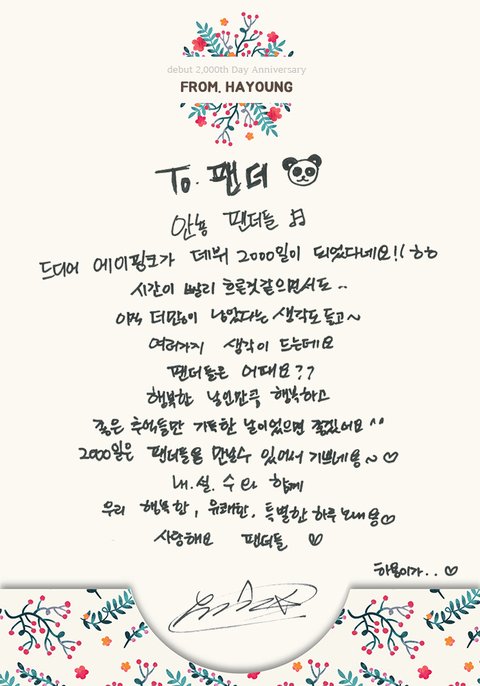 debut 2,000th Day Anniversary
FROM. HAYOUNG
To. 팬더
안뇽 팬더들
드디어 에이핑크가 데뷔 2000일이 되었다네요!! ㅎㅎ
시간이 빨리 흐른것같으면서도..
아직 더많이 남았다는 생각도들고~
여러가지 생각이 드는데요
팬더들은 어때요??
행복한 날인만큼 행복하고
좋은 추억들만 가득한 날이었으면 좋겠어요 ^^
2000일은 팬더들을 만날수 있어서 기쁘네용~♡
내.실.수 와 함께
우리 행복한, 유쾌한, 특별한 하루 보내용♡
사랑해요 팬더들 ♡
하용이가..♡